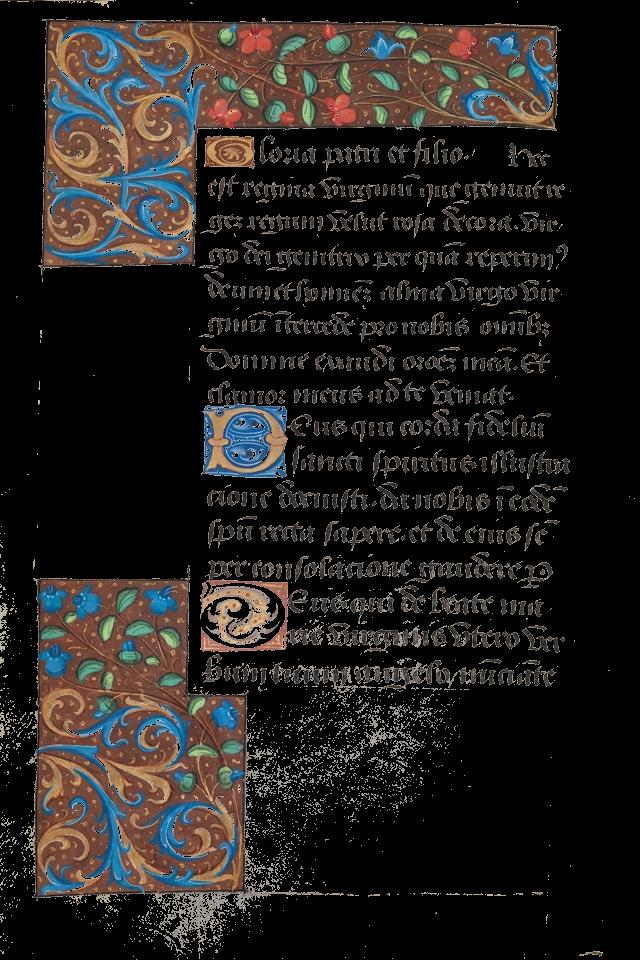 Gloria patri et filio. Hec
est regina virginū que genuit re
gez regum velut rosa decora. vir
go dei genitrix per quā reperimꝰ
deum et hominez alma virgo vir
ginū ītercede pro nobis omībꝫ
Domine exaudi oroēz meā. Et
clamor meus ad te veniat.
Deus qui corda fideliū
sancti spiritus illustra
cione docuisti. da nobis ī eodē
spū recta sapere. et de eius sē
per consolacione gaudere P
Deus qui de beate ma
rie virginis vtero ver
bum tuum angelo nūciāte